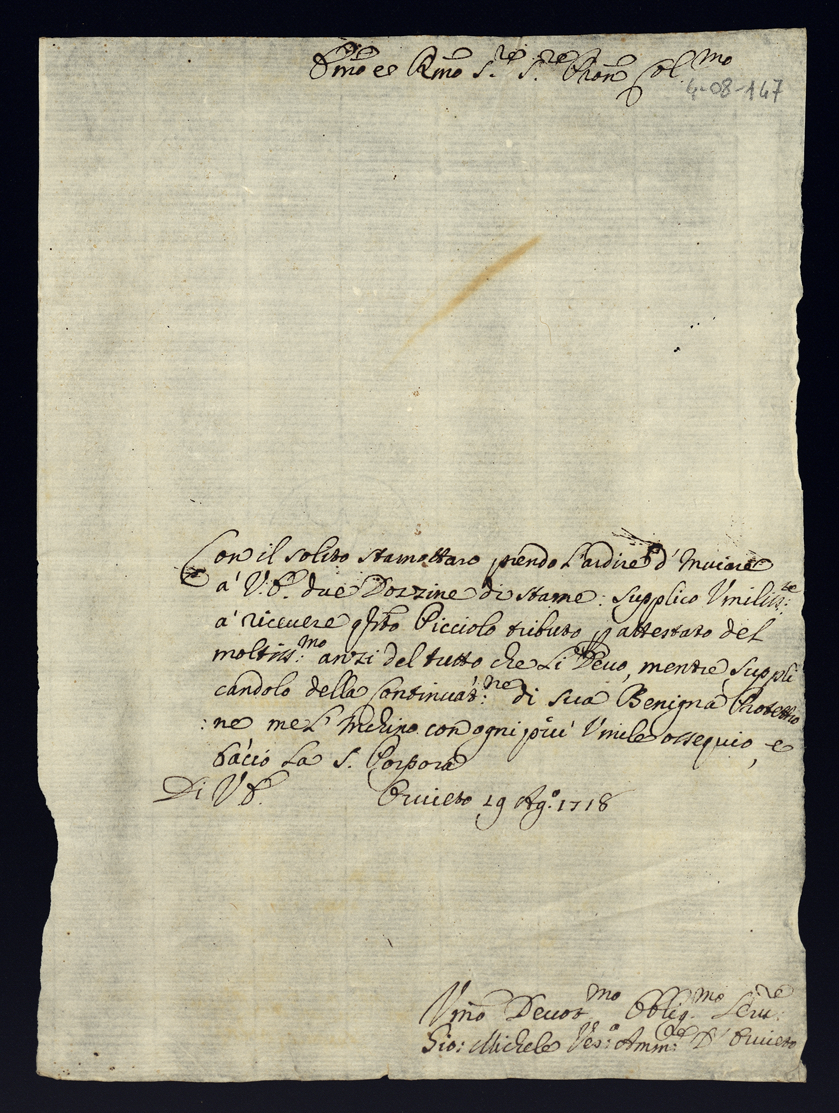 Emo e Rmo S.re S.re Pron Col.mo
4-08-147
Con il solito stamattaro prendo l'ardire d'Inuiare
à V: E. due Dozzine di stame: supplico Vmiliss:te
à riceuere qsto Picciolo tributo p attestato del
moltiss:mo anzi del tutto che Li Deuo, mentre suppli
candolo della Continuat:ne di sua Benigna Protettio
:ne me L' Inchino con ogni più Vmile ossequio, e
bacio La S. Porpora
Di V E. Oruieto 19 Ag.o 1718
Vmo Deuot.mo Oblig.mo Seru:re
Gio: Michele Ves:o Amm:re D' Oruieto